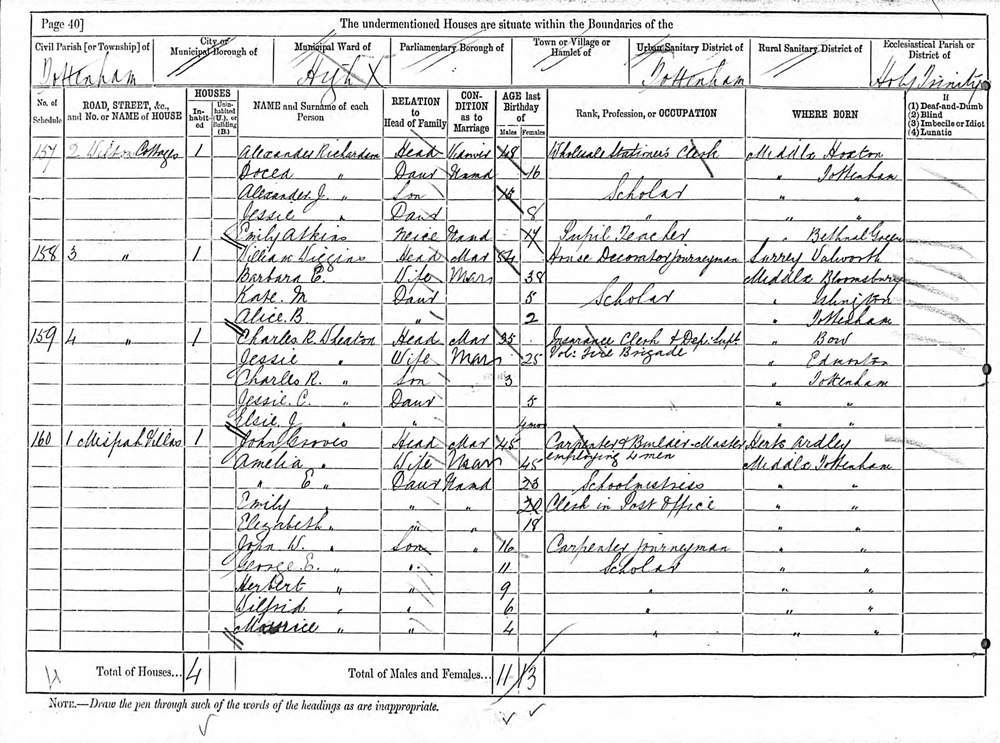 Page 40]
The undermentioned Houses are situate within the Boundaries of the
Civil Parish [or Township] of
City or Municipal Borough of
Municipal Ward of
Parliamentary Borough of
Town or Village or Hamlet of
Urban Sanitary District of
Rural Sanitary District of
Ecclesiastical Parish or District of
Tottenham High X Tottenham Holy Trinity
No. of Schedule
ROAD, STREET, &c., and No. or NAME of HOUSE
HOUSES
Inhabited
Uninhabited (U.), or Building (B.)
NAME and Surname of each Person
RELATION to Head of Family
CONDITION as to Marriage
AGE last Birthday of
Males
Females
Rank, Profession, or OCCUPATION
WHERE BORN
If
(1) Deaf-and-Dumb
(2) Blind
(3) Imbecile or Idiot
(4) Lunatic
157 2 Cottages 1 Alexander Richardson Head 48 Wholesale Stationer's Clerk Middlx Hoxton
" Daur Unmd 16 " Tottenham
Alexander J. " Son Scholar " "
Jessie " Daur 8 " " "
Emily Atkins Neice Unmd Pupil Teacher " Bethnal Green
158 3 " 1 Head Mar House Decorator Journeyman Surrey Walworth
Barbara E. " Wife Marr 38 Middlx Bloomsbury
Kate. M Daur 5 Scholar " Islington
Alice. B " 2 " Tottenham
159 4 " 1 Charles R. Head Mar 35 Insurance Clerk & Dep: Supt " Bow
Vol: Fire Brigade
Jessie " Wife Marr 25 " Edmonton
Charles R. " Son 3 " Tottenham
Jessie. C. " Daur 5 " "
Elsie. J " " 4 mos " "
160 1 Mispah Villas 1 John Groves Head Mar 45 Carpenter & Builder-Master Herts Ardley
employing 4 men
Amelia " Wife Marr 45 Middlx Tottenham
" E " Daur Unmd 23 Schoolmistress " "
Emily " " " 20 Clerk in Post Office " "
Elizabeth " " " 18 " "
John W. " Son " 16 Carpenter journeyman " "
George. E. " " 11 Scholar " "
Herbert " " 9 " " "
Wilfrid " " 6 " " "
Maurice " " 4 " " "
Total of Houses... 4
Total of Males and Females... 11 13
NOTE.—Draw the pen through such of the words of the headings as are inappropriate.